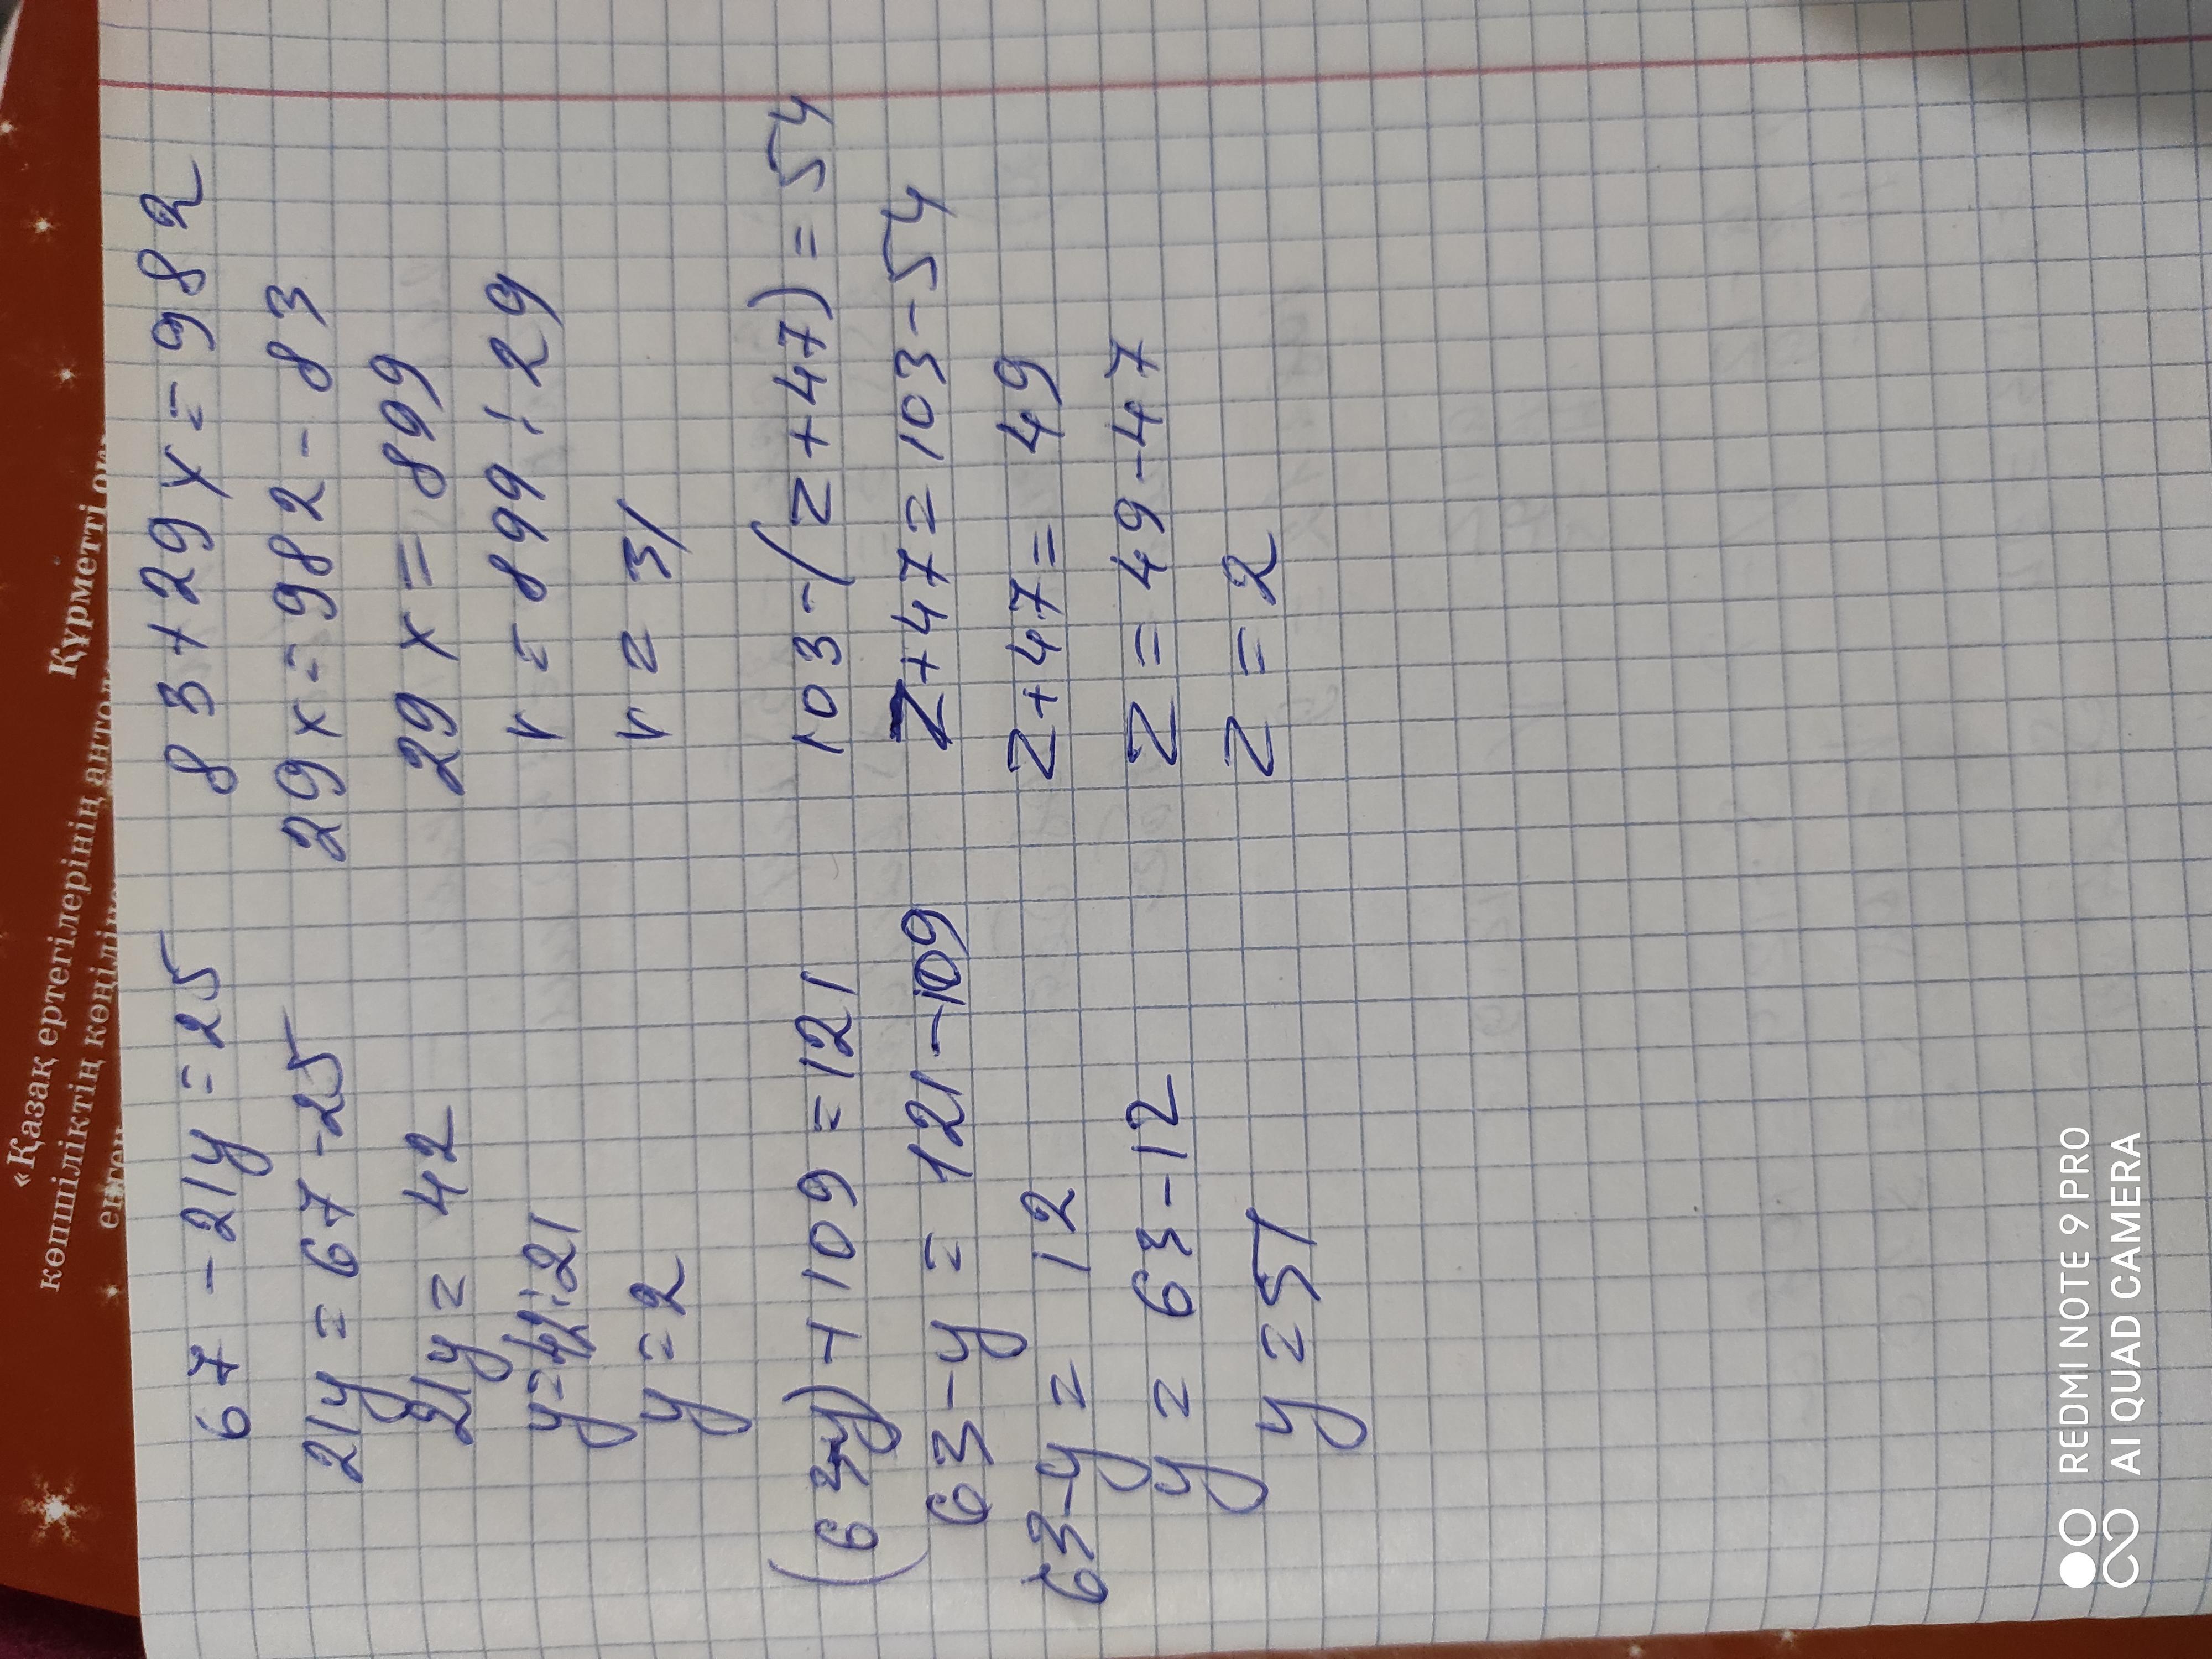 «Қазақ ертегілерінің
көпшіліктің
Құрметті
67 - 21y = 25
21y = 67 - 25
21y = 42
y = 42 : 21
y = 2
83 + 29x = 982
29x = 982 - 83
29x = 899
r = 899 : 29
r = 31
(63-y) + 109 = 121
63 - y = 121 - 109
63 - y = 12
y = 63 - 12
y = 51
103 - (z + 47) = 54
z + 47 = 103 - 54
z + 47 = 49
z = 49 - 47
z = 2
REDMI NOTE 9 PRO
AI QUAD CAMERA